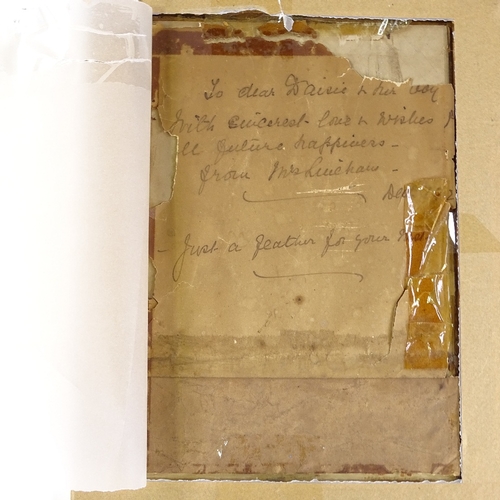 To dear Daisie & her boy
With sincerest love & wishes
ll future happiness -
from Mrs Lincham -
De
Just a feather for your